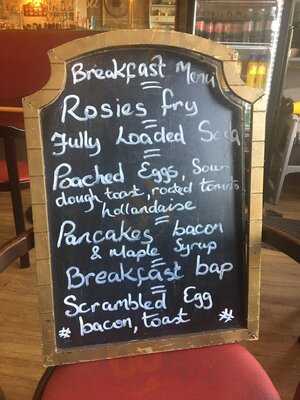 Breakfast Menu
Rosies fry
Fully Loaded Soda
Poached Eggs, Sour
dough toast, rosted tomato
hollandaise
Pancakes bacon
& Maple Syrup
Breakfast bap
Scrambled Egg
# bacon, toast #